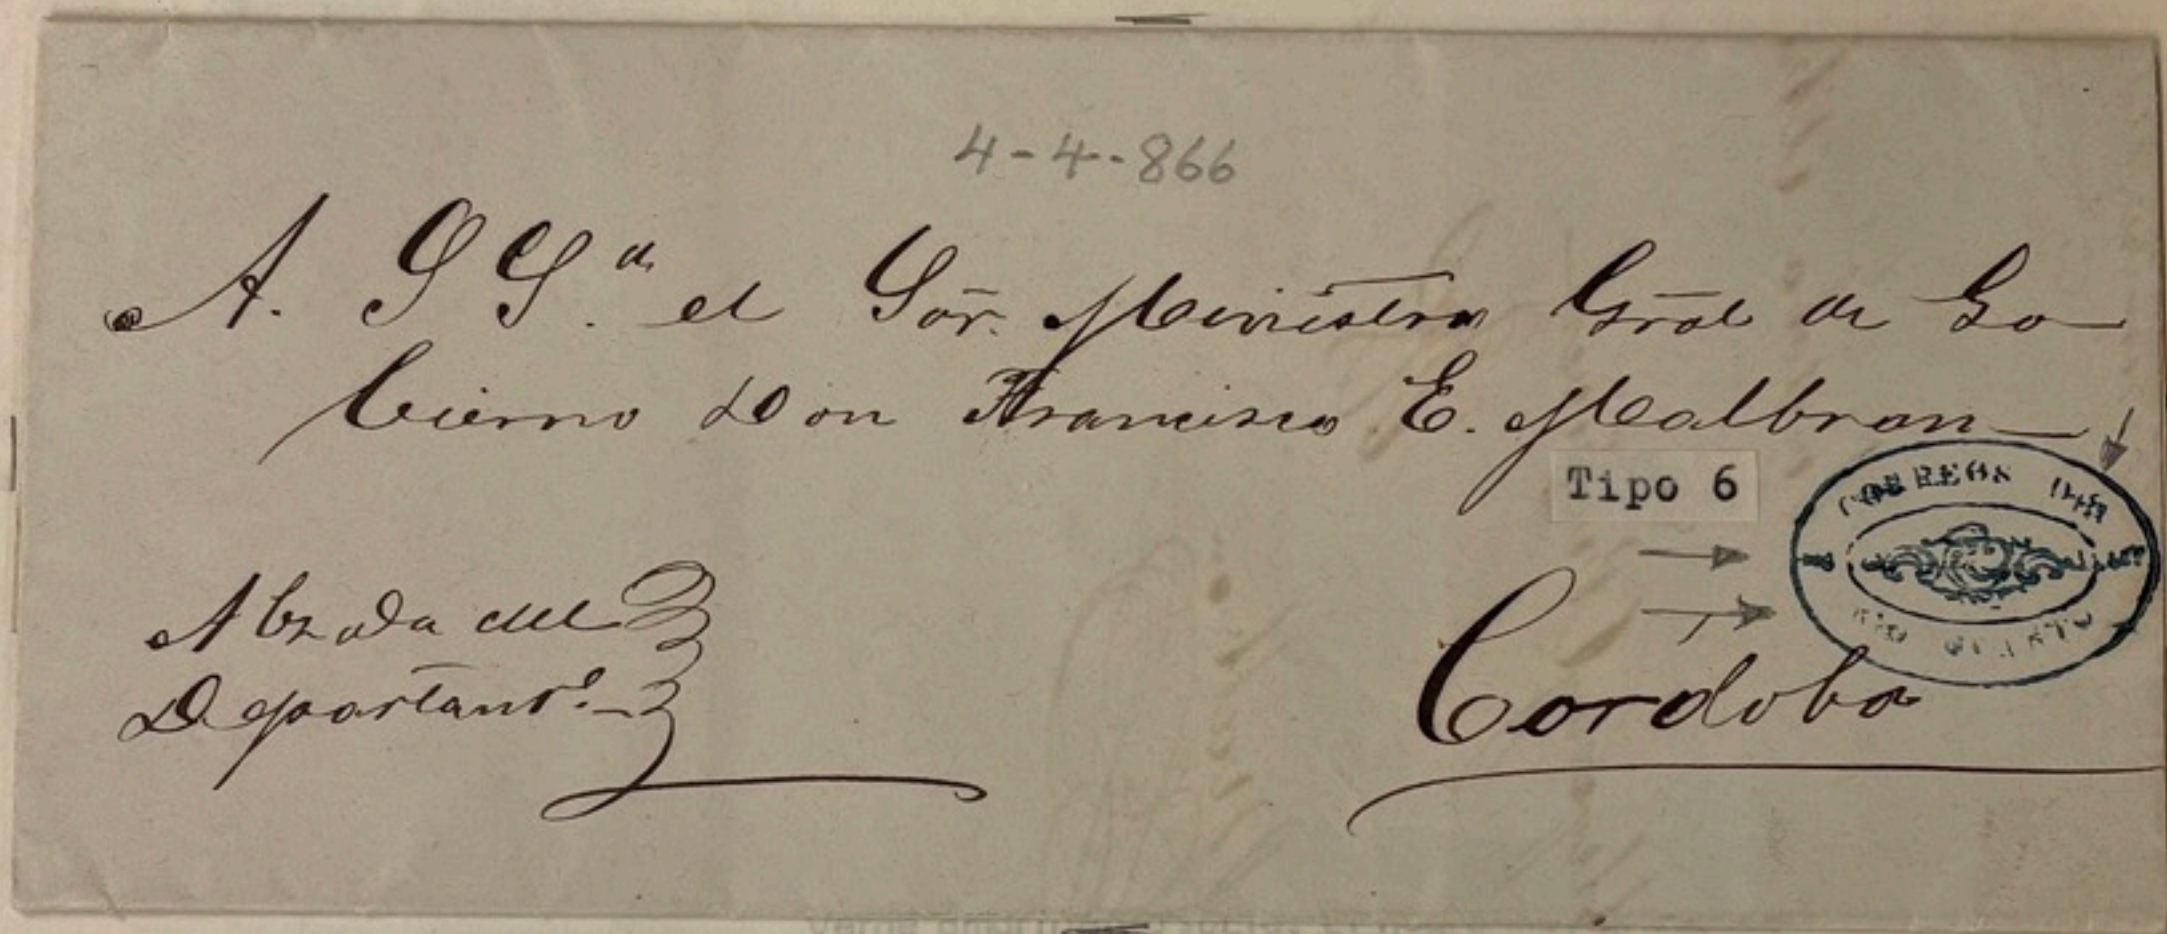 4-4-866
A. S Sª. el Sor. Ministro Gral de Go
bierno Don Francisco E. Malbran
Tipo 6
CORREOS DEL
RIO CUARTO
Departamto.
del
Cordoba